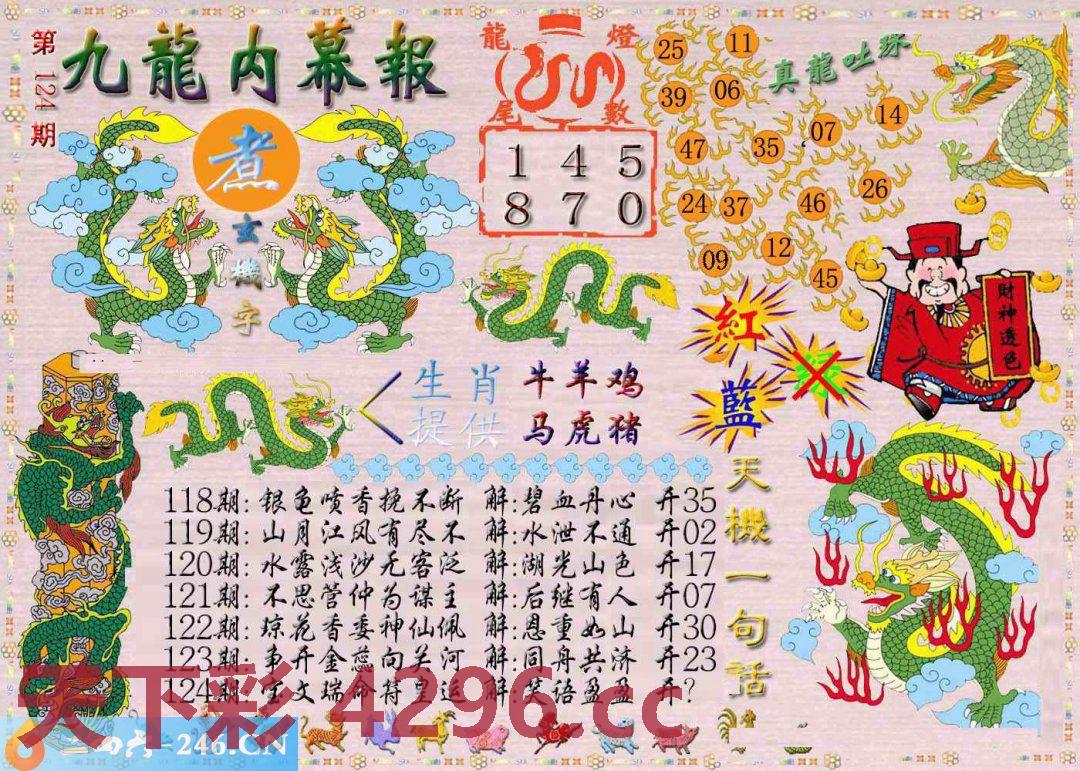 第124期
九龍内幕報
煮
玄機字
龍燈
尾數
1 4 5
8 7 0
25 11
39 06
47 35 07 14
24 37 46 26
09 12 45
真龍吐珠
財神透色
紅
藍
绿
生肖
提供
牛羊鸡
马虎猪
118期: 银龟喷香挽不断 解:碧血丹心 开35
119期: 山月江风有尽不 解:水泄不通 开02
120期: 水露浅沙无客泛 解:湖光山色 开17
121期: 不思管仲为谋主 解:后继有人 开07
122期: 琼花香委神仙佩 解:恩重如山 开30
123期: 争开金蕊向关河 解:同舟共济 开23
124期: 宝文瑞命符皇运 解:笑语盈盈 开?
天機一句话
天下彩 4296.cc
246.CN